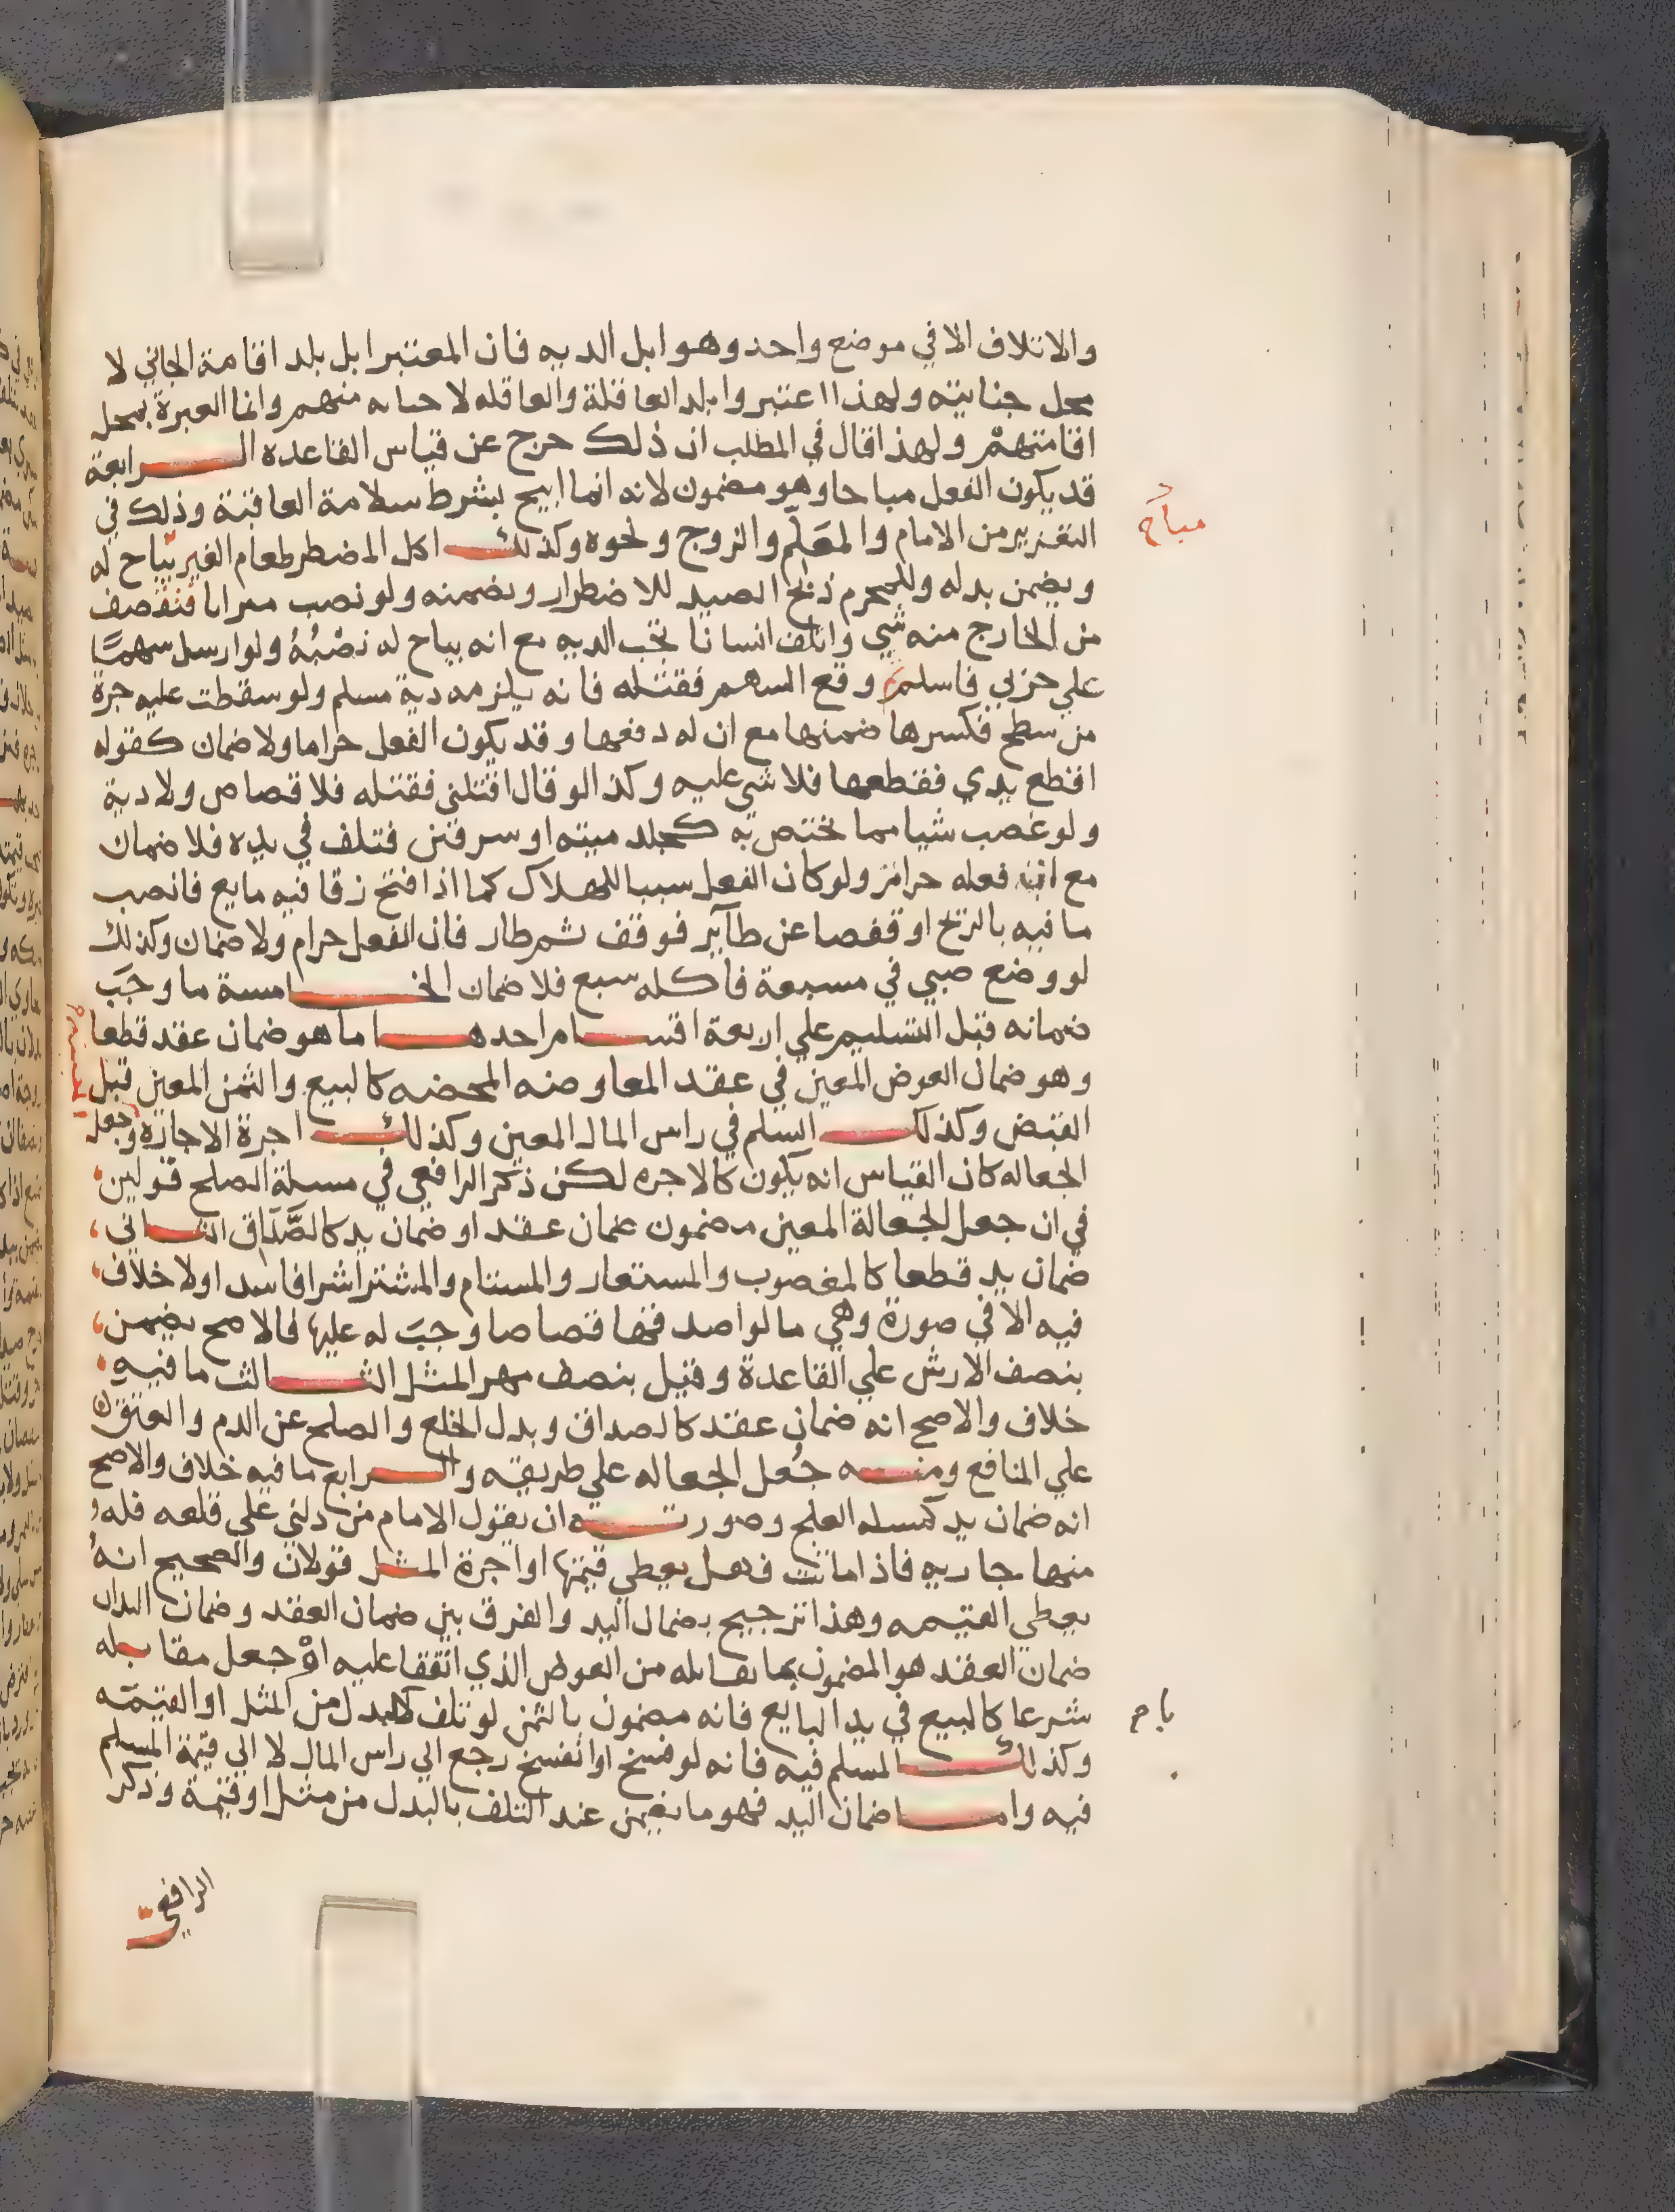 والاتلاف الا في موضع واحد وهو ابل الديه فان المعتبر ابل بلد اقامة الجاني لا
محل جنايته ولهذا اعتبروا بلد العاقلة والعاقله لا حىاىه منهم وانما العبرة بمحل
اقامتهم ولهذا قال في المطلب ان ذلك خرج عن قياس القاعده الرابعة
قد يكون الفعل مباحا وهو مضمون لانه انما ابيح بشرط سلامة العاقبة وذلك في
مباح
التعزير من الامام والمعَلّم والزوج ونحوه وكذلك اكل المضطر طعام الغير يباح له
ويضمن بدله وللمحرم ذبح الصيد للاضطرار ويضمنه ولو نصب ميزابا فتقصف
من الخارج منه شي واتلف انسانا تجب الديه مع انه يباح له نصْبُهُ ولو ارسل سهمًا
علي حربي فاسلم وقع السهم فقتله فانه يلزمه دية مسلم ولو سقطت عليه جرة
من سطح فكسرها ضمنها مع ان له دفعها وقد يكون الفعل حراما ولا ضمان كقوله
اقطع يدي فقطعها فلا شي عليه وكذا لو قال اقتلني فقتله فلا قصاص ولا دية
ولو غصب شيا مما يختص به كجلد ميته او سرقين فتلف في يده فلا ضمان
مع ان فعله حرام ولو كان الفعل سببا للهلاك كما اذا فتح زقا فيه مايع فانصب
ما فيه بالريح او قفصا عن طآير فوقف ثم طار فان الفعل حرام ولا ضمان وكذلك
لو وضع صبي في مسبعة فاكله سبع فلا ضمان الخامسة ما وجَبَ
ضمانه قبل التسليم علي اربعة اقسام احدها ما هو ضمان عقد قطعا
وهو ضمان العوض المعين في عقد المعاوضه المحضه كالبيع والثمن المعين قبل
القبض وكذلك السلم في راس المال المعين وكذلك اجرة الاجاره وجعل
الجعاله كان القياس انه يكون كالاجره لكن ذكر الرافعي في مسيلة الصلح قولين
في ان جعل الجعالة المعين مضمون ضمان عقد او ضمان يد كالصَّدَاق الثاني
ضمان يد قطعا كالمغصوب والمستعار والمستام والمشترا شرا فاسدا ولا خلاف
فيه الا في صورة وهي ما لو اصدقها قصاصا وجبَ له عليها فالاصح يضمن
بنصف الارش علي القاعدة وقيل بنصف مهر المثل الثالث ما فيه
خلاف والاصح انه ضمان عقد كالصداق وبدل الخلع والصلح عن الدم والعتق
علي المنافع ومنه جُعل الجعاله علي طريقه والرابع ما فيه خلاف والاصح
انه ضمان يد كمسله العلج وصورته ان يقول الامام من دلني علي قلعه فله
منها جاريه فاذا ماتت فهل يعطي قيمتها او اجرة المثل قولان والصحيح انهُ
يعطي القيمه وهذا ترجيح بضمان اليد والفرق بين ضمان العقد وضمان اليد ان
ضمان العقد هو المضمون بما يقابله من العوض الذي اتفقا عليه اوْ جعل مقابله
شرعا كالبيع في يد البايع فانه مضمون بالثمن لو تلف لا بدل من المثل او القيمَه
وكذلك المسلم فيه فانه لو فسخ او انفسخ رجع الي راس المال لا الي قيمة المسلم
فيه واما ضمان اليد فهو ما يضمن عند التلف بالبدل من مثل او قيمة وذكر
الرافعي